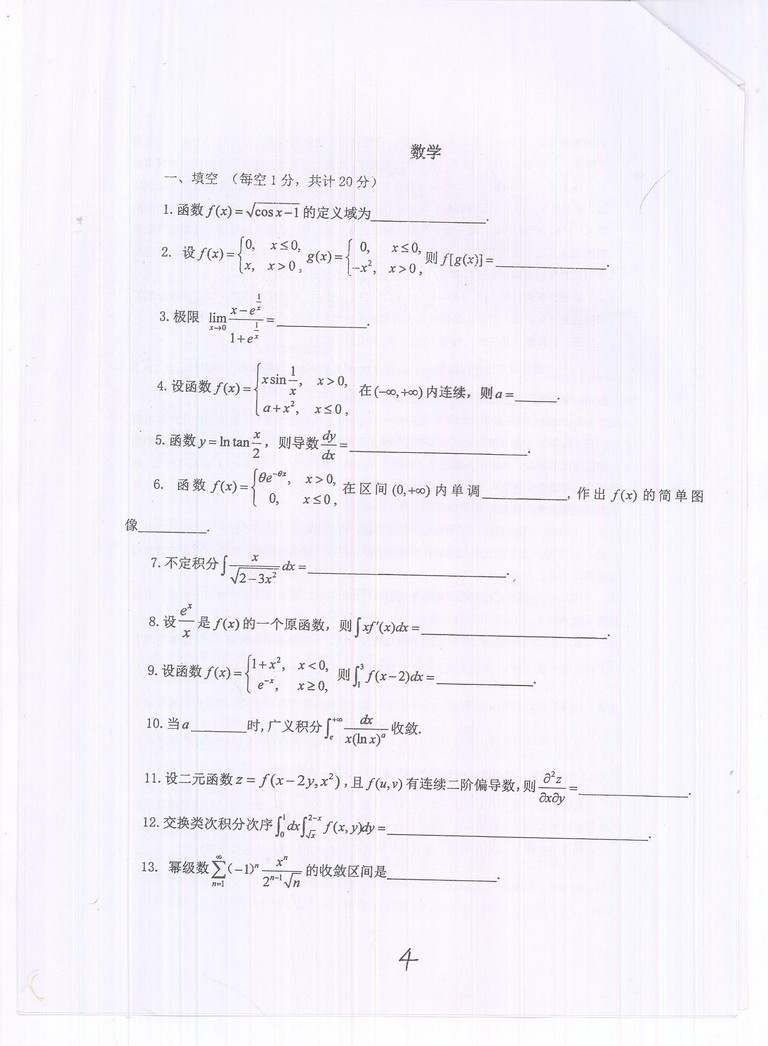 数学
一、填空 (每空1分，共计20分)
1.函数 f(x)=√(cos x−1) 的定义域为____________.
2. 设 f(x)={0, x≤0, x, x>0, g(x)={0, x≤0, −x², x>0, 则 f[g(x)]=____________.
3.极限 lim_{x→0} (x−e^{1/x})/(1+e^{1/x})=__________.
4.设函数 f(x)={x sin(1/x), x>0, a+x², x≤0, 在(−∞,+∞)内连续，则 a=_____.
5.函数 y=ln tan(x/2)，则导数 dy/dx=____________________.
6. 函数 f(x)={θe^{−θx}, x>0, 0, x≤0, 在区间(0,+∞)内单调__________,作出 f(x) 的简单图
像________.
7.不定积分∫ x/√(2−3x²) dx=______________________.
8.设 e^x/x 是 f(x) 的一个原函数，则∫xf′(x)dx=____________________.
9.设函数 f(x)={1+x², x<0, e^{−x}, x≥0, 则∫_1^3 f(x−2)dx=__________.
10.当a______时,广义积分∫_e^{+∞} dx/(x(ln x)^a) 收敛.
11.设二元函数 z=f(x−2y,x²),且 f(u,v) 有连续二阶偏导数,则 ∂²z/∂x∂y=____________.
12.交换类次积分次序∫_0^1 dx∫_{√x}^{2−x} f(x,y)dy=____________________________.
13. 幂级数 ∑_{n=1}^∞ (−1)^n x^n/(2^{n−1}√n) 的收敛区间是____________.
4